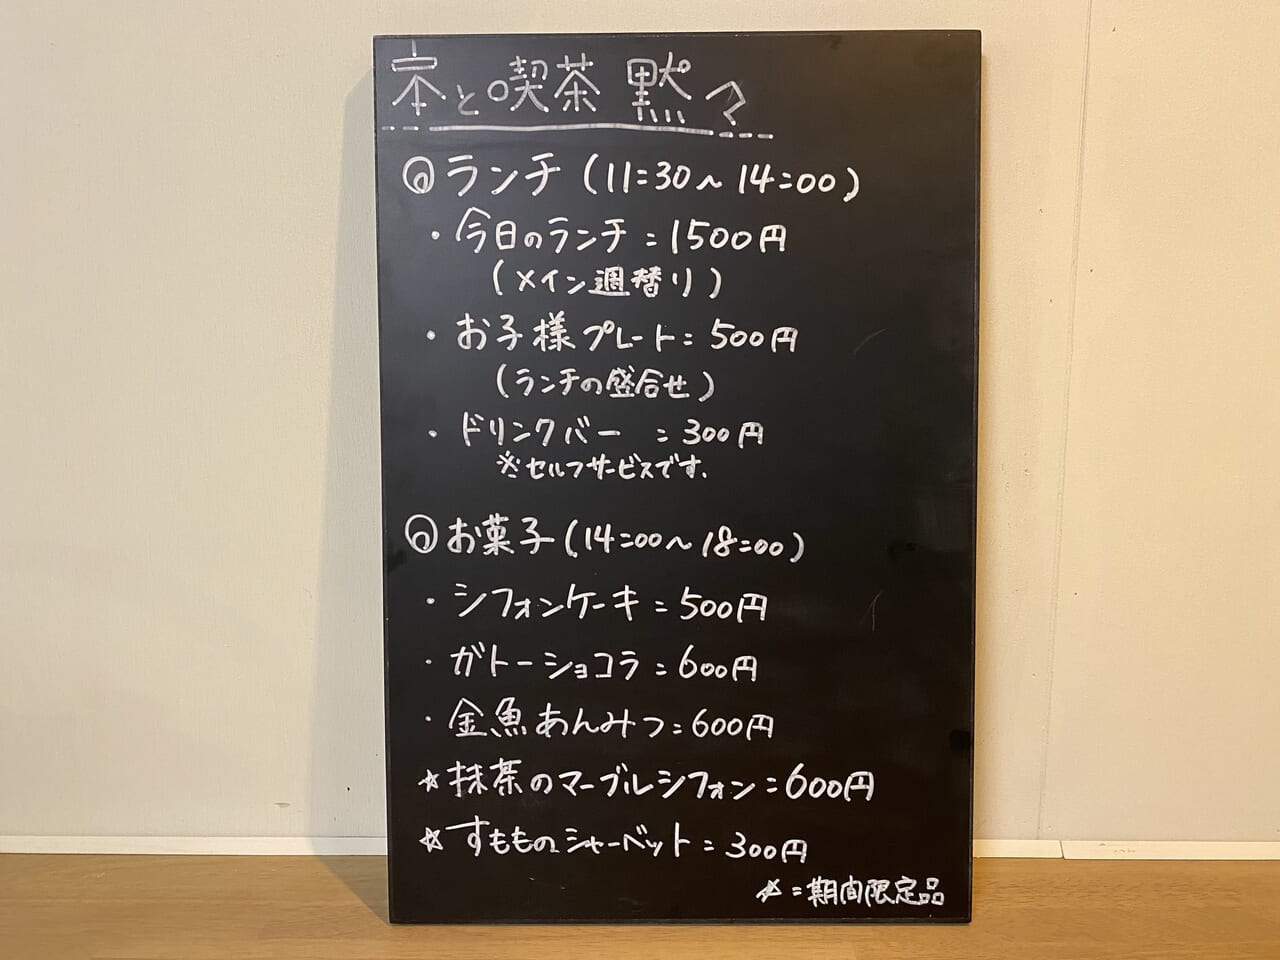 本と喫茶 黙々
◎ランチ(11:30〜14:00)
・今日のランチ:1500円
(メイン週替り)
・お子様プレート:500円
(ランチの盛合せ)
・ドリンクバー :300円
※セルフサービスです.
◎お菓子(14:00〜18:00)
・シフォンケーキ:500円
・ガトーショコラ:600円
・金魚あんみつ:600円
☆抹茶のマーブルシフォン:600円
☆すもものシャーベット:300円
☆=期間限定品